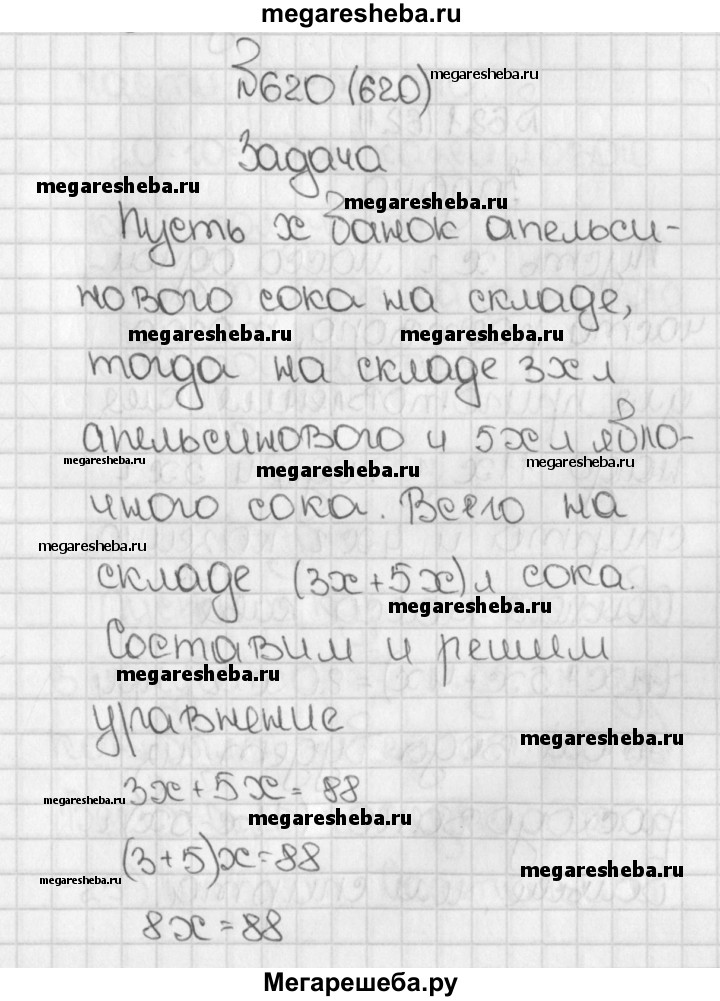 megaresheba.ru
№620 (620)
megaresheba.ru
Задача
megaresheba.ru
megaresheba.ru
Пусть x банок апельси-
нового сока на складе,
megaresheba.ru megaresheba.ru
тогда на складе 3x л
апельсинового и 5x л ябло-
megaresheba.ru megaresheba.ru megaresheba.ru
чного сока. Всего на
megaresheba.ru
складе (3x+5x) л сока.
megaresheba.ru
Составим и решим
megaresheba.ru
уравнение
megaresheba.ru
3x+5x=88
megaresheba.ru
megaresheba.ru
(3+5)x=88
megaresheba.ru
megaresheba.ru
8x=88
Мегарешеба.ру